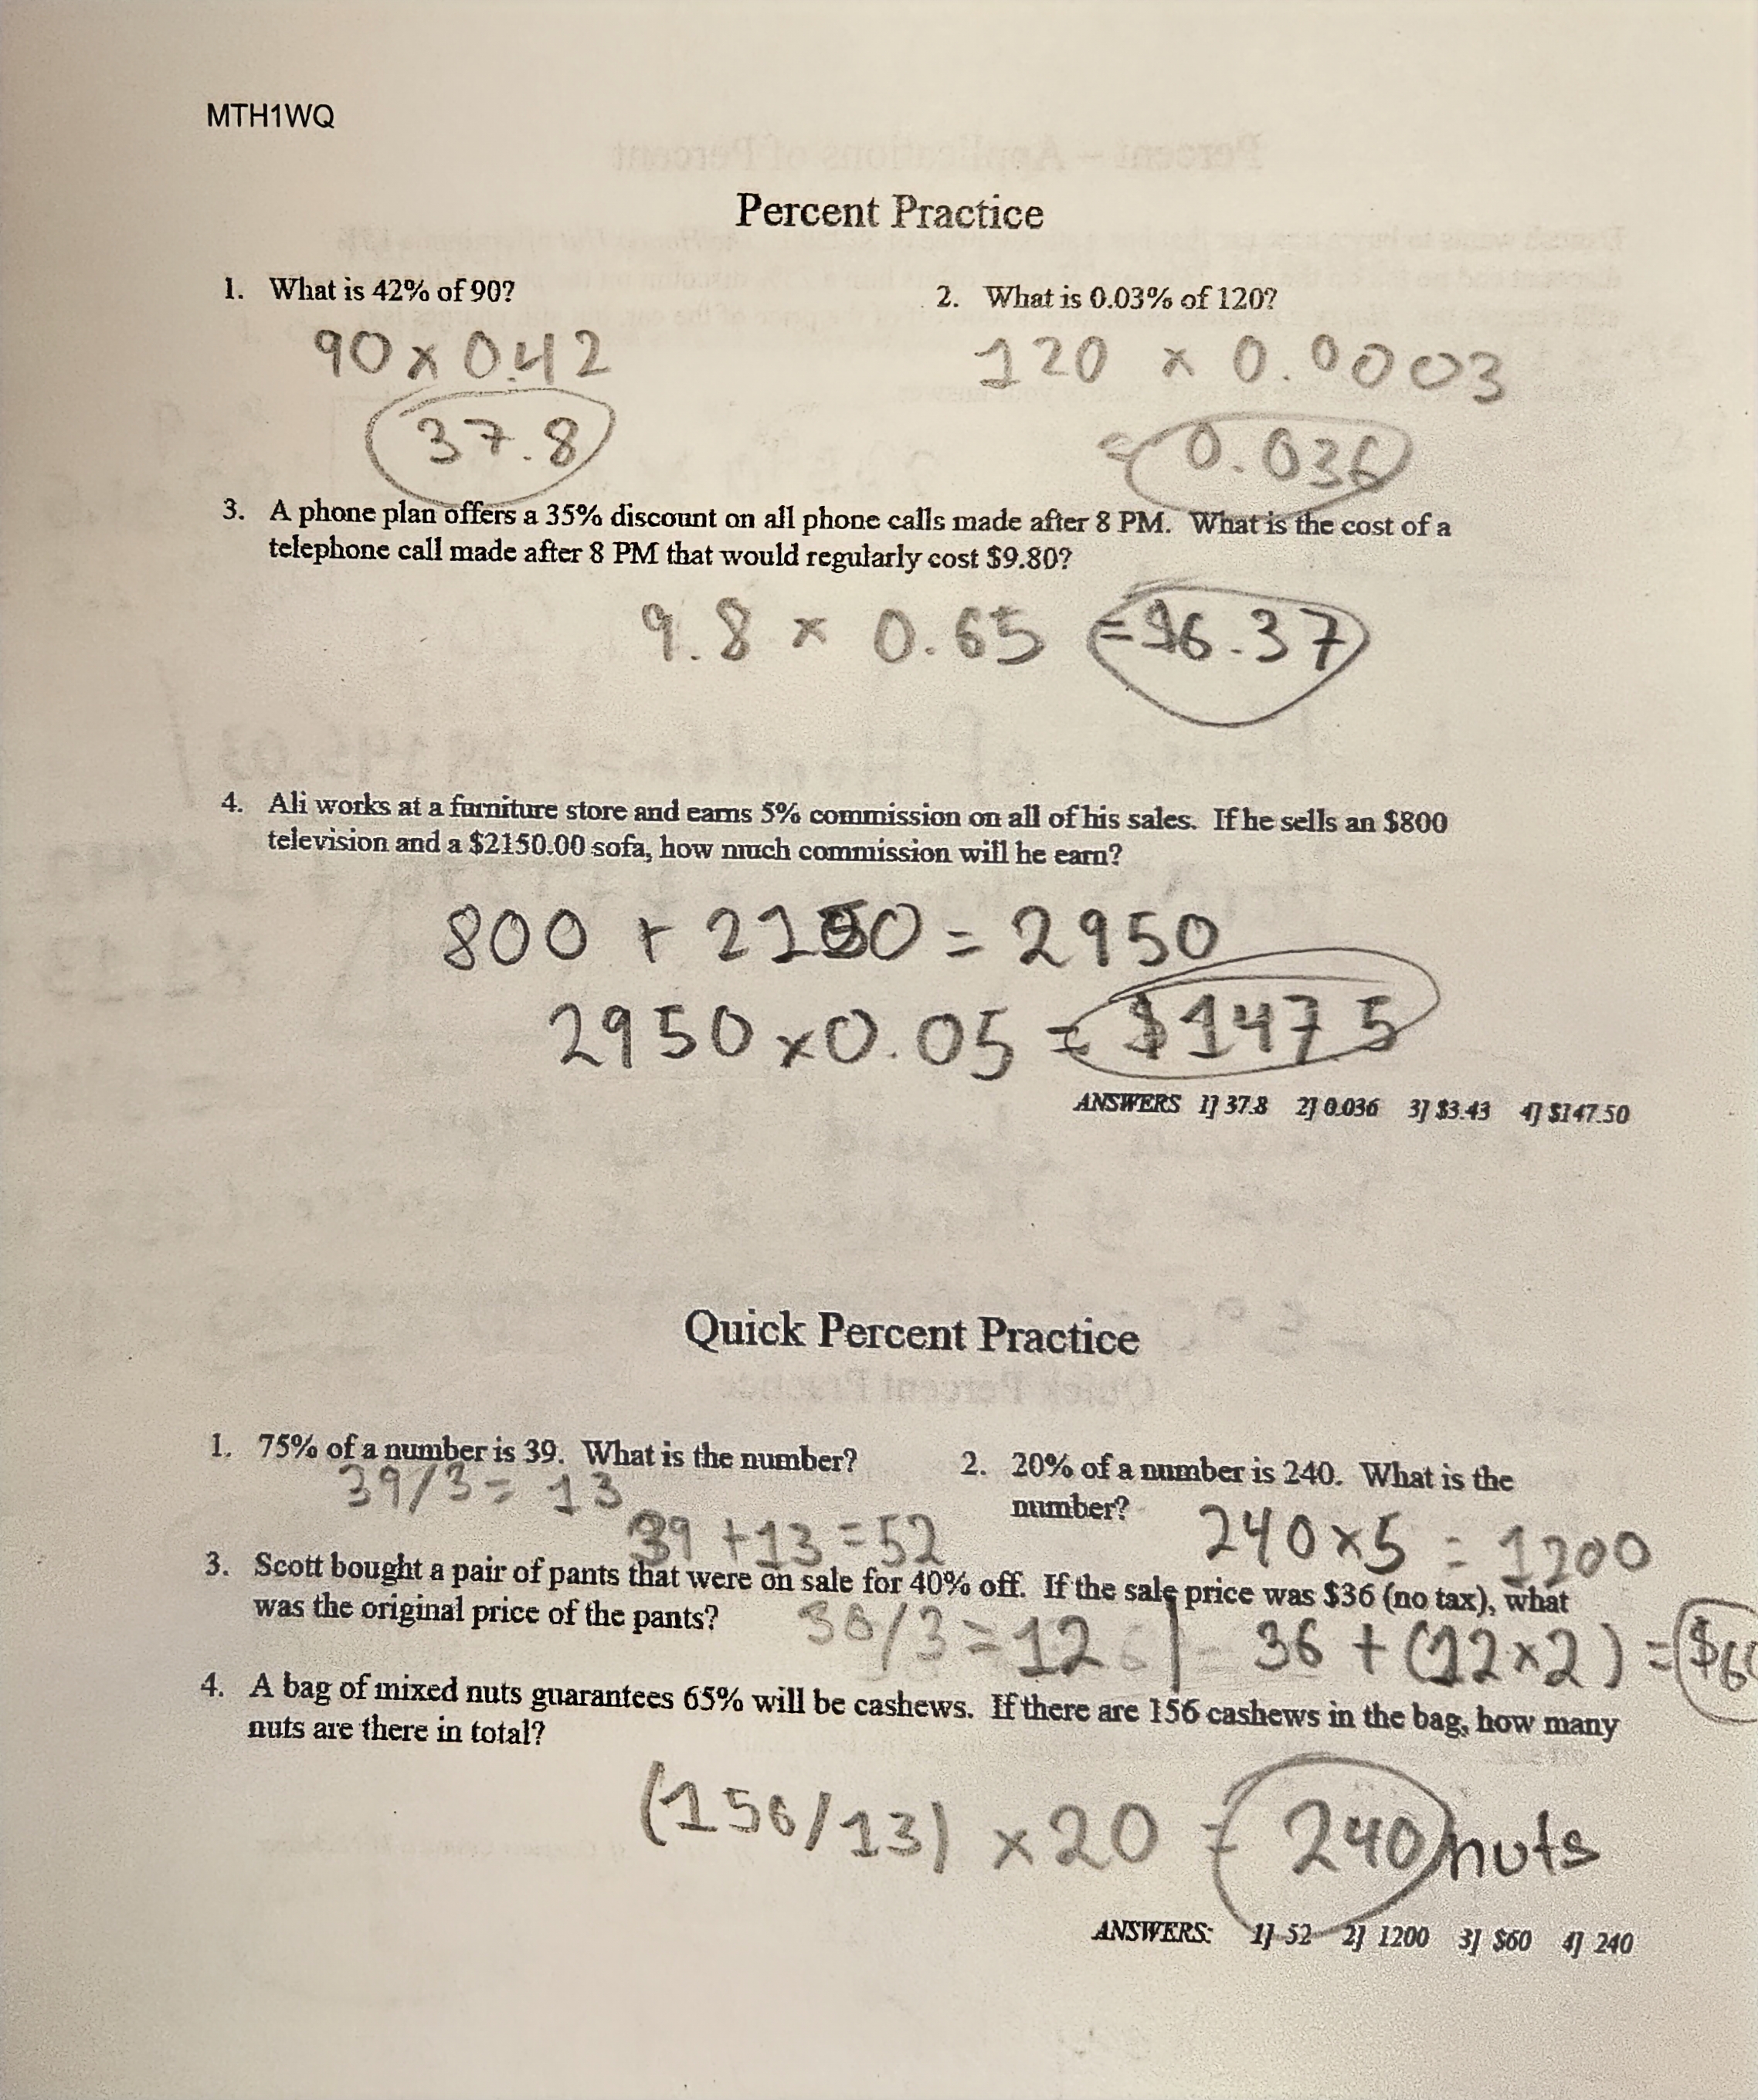 MTH1WQ
Percent Practice
1. What is 42% of 90?
90 x 0.42
37.8
2. What is 0.03% of 120?
120 x 0.0003
= 0.036
3. A phone plan offers a 35% discount on all phone calls made after 8 PM. What is the cost of a
telephone call made after 8 PM that would regularly cost $9.80?
9.8 x 0.65 = $6.37
4. Ali works at a furniture store and earns 5% commission on all of his sales. If he sells an $800
television and a $2150.00 sofa, how much commission will he earn?
800 + 2150 = 2950
2950 x 0.05 = $147 5
ANSWERS 1] 37.8 2] 0.036 3] $3.43 4] $147.50
Quick Percent Practice
1. 75% of a number is 39. What is the number?
39/3 = 13
39 + 13 = 52
2. 20% of a number is 240. What is the
number?
240 x 5 = 1200
3. Scott bought a pair of pants that were on sale for 40% off. If the sale price was $36 (no tax), what
was the original price of the pants?
36/3 = 12 | 36 + (12 x 2) = $60
4. A bag of mixed nuts guarantees 65% will be cashews. If there are 156 cashews in the bag, how many
nuts are there in total?
(156/13) x 20 = 240 nuts
ANSWERS: 1] 52 2] 1200 3] $60 4] 240